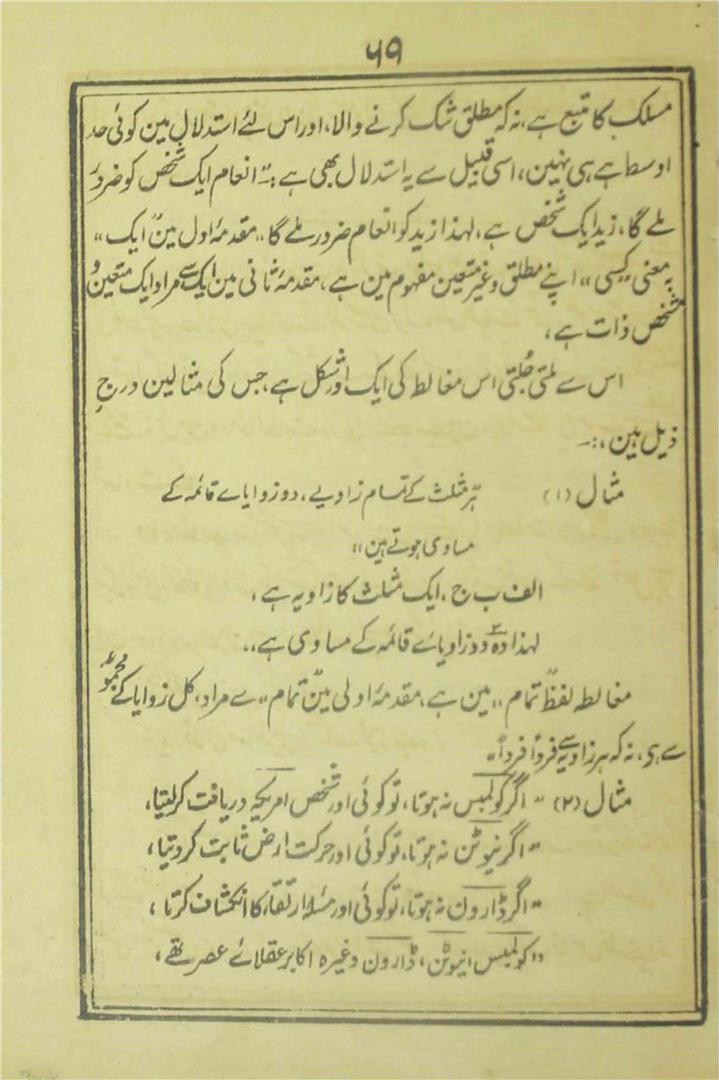 ۵۹
مسلک کا متبع ہے، نہ کہ مطلق شک کرنے والا، اور اس لئے استدلال مین کوئی حد
اوسط ہے ہی نہین، اسی قبیل سے یہ استدلال بھی ہے:۔ "انعام ایک شخص کو ضرور
ملے گا، زید ایک شخص ہے، لہذا زید کو انعام ضرور ملے گا" مقدمۂ اول مین "ایک"
بہ معنی "کسی" اپنے مطلق و غیر متعین مفہوم مین ہے، مقدمۂ ثانی مین ایک سے مراد ایک متعین و
مشخص ذات ہے،
اس سے ملتی جُلتی اس مغالطہ کی ایک اور شکل ہے، جس کی مثالین درج
ذیل ہین،:۔
مثال (۱) "ہر مثلث کے تمام زاویے، دو زوایاے قائمہ کے
مساوی ہوتے ہین"
الف ب ج، ایک مثلث کا زاویہ ہے،
لہذا وہ دو زاویاے قائمہ کے مساوی ہے"
مغالطہ لفظ "تمام" مین ہے، مقدمۂ اولی مین "تمام" سے مراد، کل زوایا کے مجموعہ
سے ہی، نہ کہ ہر زاویہ سے فرداً فرداً"
مثال (۲) "اگر کولمبس نہ ہوتا، تو کوئی اور شخص امریکہ دریافت کر لیتا،
"اگر نیوٹن نہ ہوتا، تو کوئی اور حرکت ارض ثابت کر دیتا،
"اگر ڈارون نہ ہوتا، تو کوئی اور مسئلہ ارتقاء کا انکشاف کرتا،
"کولمبس، نیوٹن، ڈارون وغیرہ اکابر عقلائے عصر تھے،